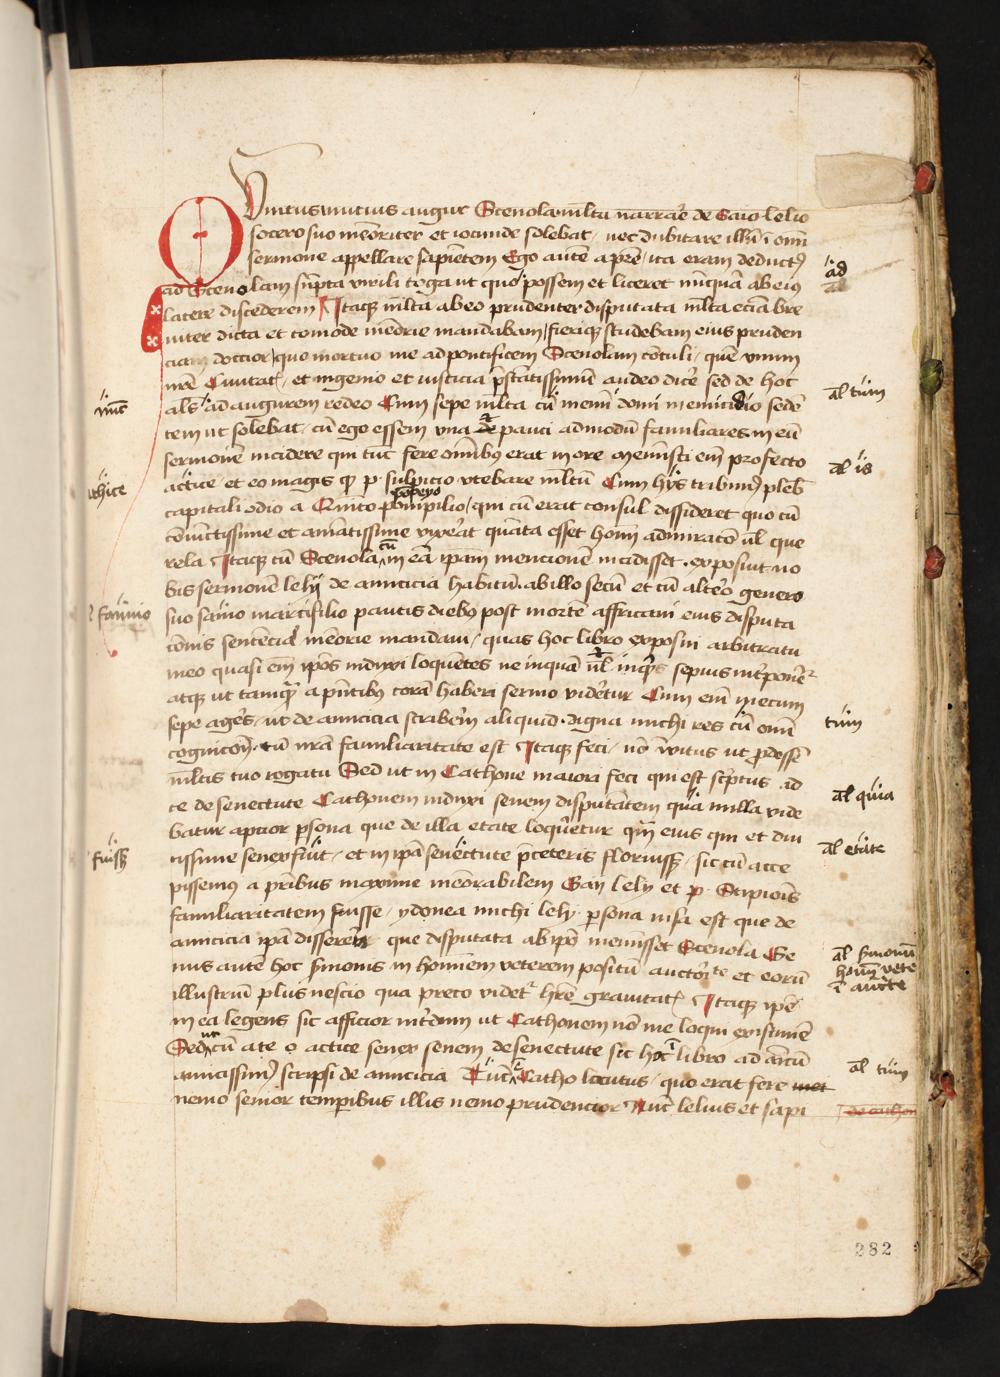 Quintus mucius augur Scenola ml̅ta narra̅e de Gaio lelio
socero suo meo̅riter et iocunde solebat / nec dubitare illu̅ i̅ om̅i
sermone appellare sapie̅tem Ego aute̅ a pr̅e / ita eram deduct9
ad Sceuolam su̅pta virili toga ut quo̅ possem et liceret nu̅qua̅ ab eiꝰ
latere discederem Itaqꝫ ml̅ta ab eo prudenter disputata ml̅ta ecia̅ bre
uiter dicta et co̅mode me̅orie mandabam / fieriqꝫ studebam eius pruden
ciam doctior / quo mortuo me ad pontificem Scenolam co̅tuli / que̅ vnum
nr̅e Ciuitat̅ / et ingenio et iusticia pr̅sta̅tissimu̅ audeo dice̅ sed de hoc
al̅s ad augurem redeo Cum sepe ml̅ta cu̅ memi̅ domi in emiciclio sede̅
tem ut solebat / cu̅ ego essem vna et pauci admodu̅ familiares in eu̅
sermone̅ incidere qui tu̅c fere om̅ibꝰ erat in ore Memi̅sti em̅ profecto
actice / et eo magis qꝫ p. sulpicio vtebare ml̅tu̅ Cum hijs tribun9 pleb̅
capitali odio a Quinto pompilio / qui cu̅ erat consul dissideret quo cu̅
co̅iu̅ctissime et ama̅tissime vixe̅at qua̅ta esset hom̅ admiracō ul̅ que
rela Itaqꝫ cu̅ Scenola in ea̅ ip̅am mencione̅ incidisset . exposuit no
bis sermone̅ lelij de amicicia habitu̅ . ab illo secu̅ et cu̅ alte̅o genero
suo fanio marci filio paucis diebꝰ post morte̅ affricani eius disputa
co̅nis sente̅cias me̅orie mandaui / quas hoc libro exposui arbitratu
meo quasi em̅ ip̅os induxi loque̅tes ne inqua̅ ul̅ inq̅t sepius int̅poner̅
atqꝫ ut tamqua̅ a pn̅tibꝰ cora̅ haberi sermo vide̅tur Cum em̅ mecum
sepe age̅s / ut de amicicia scribe̅m aliquid . digna michi res cu̅ om̅i
cognicōn̅ . tu̅ nr̅a familiaritate est Itaqꝫ feci / no̅ i̅vitus ut p̅desse̅
ml̅tis tuo rogatu Sed ut in Cathone maiori feci qui est scr̅ptus ad
te de senectute Cathonem induxi senem disputa̅tem quia nulla vide
batur aptior p̅sona que de illa etate loque̅tur qua̅ eius qui et diu
tissime senex fuit / et in ip̅a senectute p̅ ceteris floruissꝫ / sic cu̅ acce
pissemꝰ a pr̅ibus maxime me̅orabilem Gaij lelij et p. Scipio̅is
familiaritatem fuisse / ydonea michi lelij . p̅sona uisa est que de
amicicia ip̅a dissereret que disputata ab ip̅o memi̅sset Scenola Ge
nus aute̅ hoc s̅monis in hominem veterem positu̅ aucto̅rite et eoru̅
illustriu̅ plus nescio quo preco videt̅ hr̅e grauitat̅ Itaqꝫ ip̅e
in ea legens sic afficior int̅dum ut Cathonem no̅ me loqui existime̅
Sed ut cu̅ a te o actice senex senem de senectute sic hoc libro ad a̅icu̅
amicissim9 scripsi de amicicia Tu̅c Catho locutus / quo erat fere
nemo senior temp̅ibus illis nemo prudencior Nu̅c lelius et sapi
ad
al̅ tum
al̅ is
tum
al̅ quia
al̅ etate
al̅ s̅monu̅
hom̅ vete
i̅ auc̅te
al̅ tum
nu̅c
athice
pompeyo
fannio
fuissꝫ
282